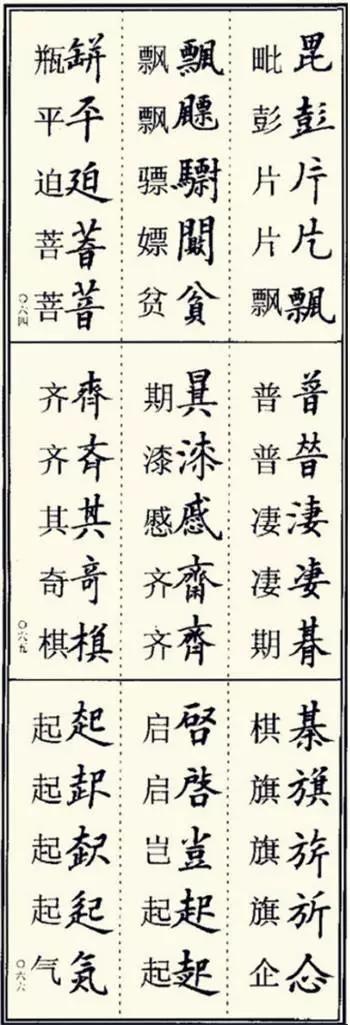 毘彭片片飄
毗彭片片飘
飄驃闝貧
飘飘骠嫖贫
缾平廹
瓶平迫菩菩
〇六四
普暜淒凄朞
普普凄凄期
漆慼齊
期漆慼齐齐
齊斉其竒棋
齐齐其奇棋
〇六五
棊旗旂企
棋旗旗旗企
啓豈起起
启启岂起起
起起気
起起起起气
〇六六